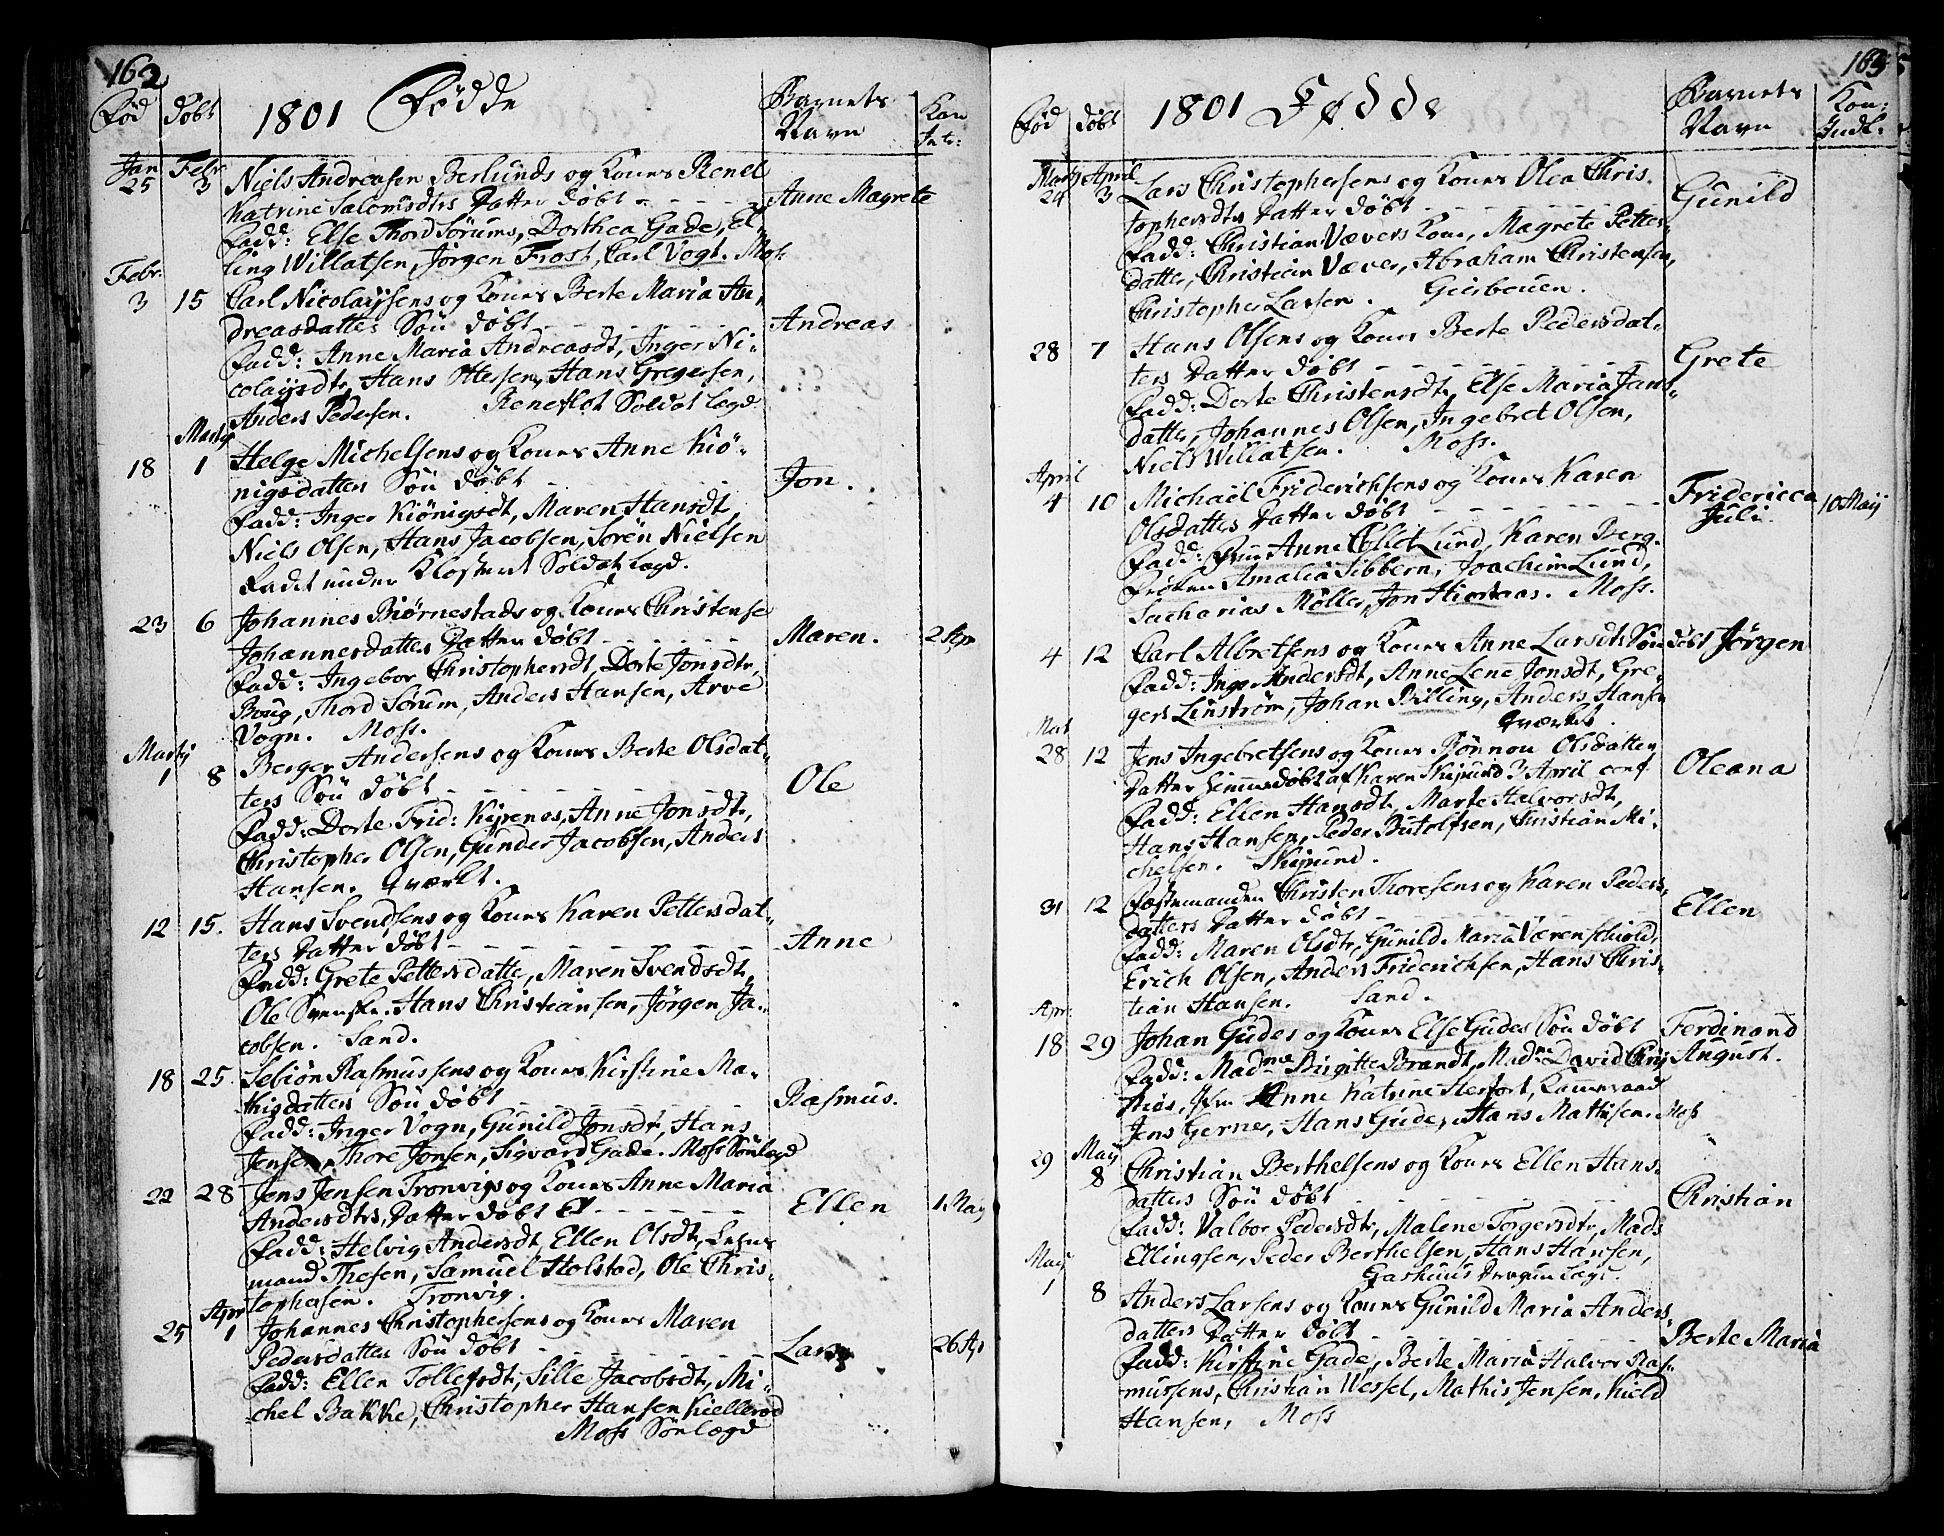 162
Fød
Døbt
1801 Fødde
Barnets
Navn
Kon
Intr:
Jan
25
Febr
3
Niels Andreasen Berlunds og Kones Renel
Katrine Salomsdtrs Datter døbt
Anne Magrete
Fadd: Else Thord Sørums, Dorthea Gade, El-
ling Willatsen, Jørgen Frost, Carl Vogt. Moss
Febr.
3
15
Carl Nicolaysens og Kones Berte Maria An-
dreasdatters Søn døbt
Andreas
Fadd: Anne Maria Andreasdt, Inger Ni-
colaysdtr, Hans Ottersen, Hans Gregersen,
Anders Pedersen. Reneflot Soldat Lægd
Martÿ
18
1
Helge Michelsens og Kones Anne Kiö-
nigsdatters Søn døbt
Jon.
Fadd: Inger Kiönigsdt, Maren Hansdt,
Niels Olsen, Hans Jacobsen, Sören Nielsen
Ladt under Klostert Soldat Lægd.
23
6
Johannes Biørnestads og Kones Christense
Johannesdatters Datter døbt
Maren.
2 Apr
Fadd: Ingebor Christophersdt, Dorte Jonsdtr,
Boug, Thord Sørum, Anders Hansen, Arve
Vogn. Moss.
Martÿ
1
8
Berger Andersens og Kones Berte Olsdat-
ters Søn døbt
Ole
Fadd: Dorte Frid: Kipenes, Anne Jonsdt,
Christopher Olsen, Gunder Jacobsen, Anders
Hansen. Qværkt.
12
15.
Hans Svendsens og Kones Karen Pettersdat-
ters Datter døbt
Anne
Fadd: Grete Pettersdatte, Maren Svendsdt,
Ole Svenske. Hans Christiansen, Jørgen Ja-
cobsen. Sand.
18
25.
Sebiön Rasmussens og Kones Kirstine Ma-
thisdatters Søn døbt
Rasmus.
Fadd: Inger Vogn, Gunild Jonsdt, Hans
Jensen, Thore Jonsen, Sigvard Gade. Moss Sönlægd
22
28
Jens Jensen Tronvigs og Kones Anne Maria
Andersdtrs, Datter døbt
Ellen
1. May
Fadd: Helvig Andersdt, Ellen Olsdt,
mand Thesen, Samuel Holstad, Ole Chris-
tophersen. Tronvig.
25
Apr
1
Johannes Christophersens og Kones Maren
Pedersdatters Søn døbt
Lars
26 Ap
Fadd: Ellen Tollefsdt, Sille Jacobsdt, Mi-
chel Bakke, Christopher Hansen Kiellerød
Moss Sönlægd
163
Fød
døbt
1801 Fødde
Barnets
Navn
Kon:
Indl:
Marty
24
April
3
Lars Christophersens og Kones Olea Chris-
tophersdtrs Datter døbt
Gunild
Fadd: Christian Vævers Kone, Magrete Petter-
datter, Christian Væver, Abraham Christensen,
Christopher Larsen. Giesbeuen.
28
7
Hans Olsens og Kones Berte Pedersdat-
ters Datter døbt
Grete
Fadd: Dorte Christensdt, Else Maria Jans-
datter, Johannes Olsen, Ingebret Olsen,
Niels Willatsen. Moss.
April
4
10
Michael Friderichsens og Kones Karen
Olsdatters Datter døbt
Fridericca
Juli.
10 Maij
Fadd: Frue Anne Collet Lund, Karen Berg.
Frøken Amalia Sibbern, Joachim Lund,
Sacharias Møller, Jon Hiortaas. Moss.
4
12
Carl Albretsens og Kones Anne Larsdt Søn døbt Jørgen
Fadd: Inger Andersdt, Anne Lene Jonsdt, Gre-
gers Linstrøm, Johan Billing, Anders Hansen
Qværkt.
Mart
28
12
Jens Ingebretsens og Kones Rönnou Olsdatters
Datter hiemmedøbt af Karen Skipund 3 April conf
Oleana
Fadd: Ellen Hansdt, Marte Halvorsdt,
Hans Hansen, Peder Butolfsen, Christian Mi-
chelsen. Skipund.
31
12
Fæstemanden Christen Thoresens og Karen Peders-
datters Datter døbt
Ellen
Fadd: Maren Olsdtr, Gunild Maria Værenschiold,
Erich Olsen, Anders Friderichsen, Hans Chris-
tian Hansen. Sand.
Apr.
18
29
Johan Gudes og Kones Else Gudes Søn døbt
Ferdinand
August.
Fadd: Madme Birgitte Brandt, Madme David Chrys
Thiøs, Jfr Anne Katrine Herfort, Kammeraad
Jens Gerner, Hans Gude, Hans Mathisen. Moss
29
May
8
Christian Berthelsens og Kones Ellen Hans-
datters Søn døbt
Christian
Fadd: Valbor Pedersdtr, Malene Torgersdtr, Mads
Ellingsen, Peder Berthelsen, Hans Hansen,
Gashuus Dragun Lægd.
May
1
8
Anders Larsens og Kones Gunild Maria Anders-
datters Datter døbt
Berte Maria
Fadd: Kirstine Gade, Berte Maria Halvor Ras-
mussens, Christian Wessel, Mathis Jensen, Kield
Hansen, Moss